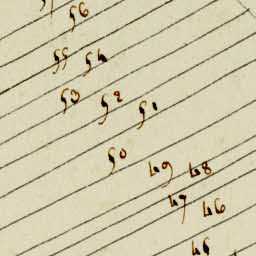 56
55 54
53 52 51
50 49 48
47 46
45